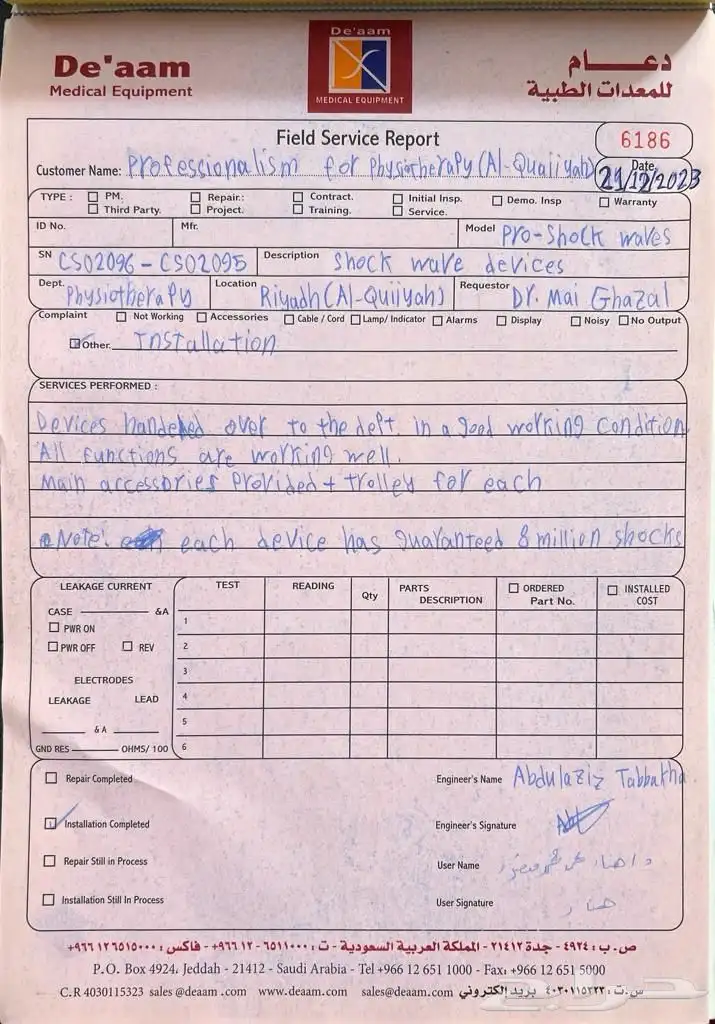 De'aam
Medical Equipment
De'aam
MEDICAL EQUIPMENT
دعـــام
للمعدات الطبية
Field Service Report
6186
Customer Name: Professionalism for Physiotherapy (Al-Quiiyah)
Date
21/12/2023
TYPE : PM. Repair.: Contract. Initial Insp. Demo. Insp Warranty
Third Party. Project. Training. Service.
ID No. Mfr. Model Pro-Shock waves
SN CS02096 - CS02095 Description Shock wave devices
Dept. Physiotherapy Location Riyadh (Al-Quiiyah) Requestor Dr. Mai Ghazal
Complaint Not Working Accessories Cable / Cord Lamp/ Indicator Alarms Display Noisy No Output
Other. Installation
SERVICES PERFORMED :
Devices handehed over to the dept. in a good working condition
All functions are working well.
Main accessories Provided + trolley for each
Note: each device has guaranteed 8 million shocks
LEAKAGE CURRENT TEST READING Qty PARTS DESCRIPTION ORDERED Part No. INSTALLED COST
CASE &A
PWR ON
PWR OFF REV
ELECTRODES
LEAKAGE LEAD
&A
GND RES OHMS/ 100
1
2
3
4
5
6
Repair Completed Engineer's Name Abdulaziz Tabbakha
Installation Completed Engineer's Signature
Repair Still in Process User Name
Installation Still In Process User Signature
ص.ب: ٤٩٢٤ - جدة ٢١٤١٢ - المملكة العربية السعودية - ت: ٦٥١١٠٠٠ ١٢ ٩٦٦+ - فاكس: ٦٥١٥٠٠٠ ١٢ ٩٦٦+
P.O. Box 4924, Jeddah - 21412 - Saudi Arabia - Tel +966 12 651 1000 - Fax: +966 12 651 5000
C.R 4030115323 sales @deaam .com www.deaam.com sales@deaam.com س.ت: ٤٠٣٠١١٥٣٢٣ بريد إلكتروني
حراج